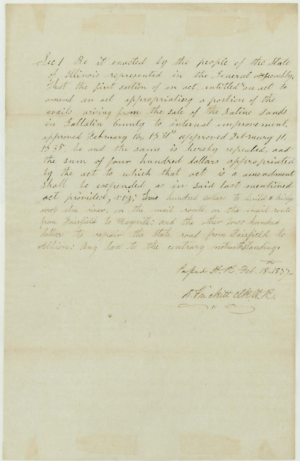 Sec 1 Be it enacted by the people of the State
of Illinois represented in the General Assembly,
That the first section of an act, entitled "an act to
amend an act appropriating a portion of the
avails arising from the sale of the Saline lands
in Gallatin County to internal improvement,
approved February the 1831" approved February 11.
1835 be and the same is hereby repealed, and
the sum of four hundred dollars appropriated
by the act to which that act is a amendment
shall be expended as in said last mentioned
act provided, viz; Two hundred dollars to build a bridge
over river, on the mail route on the
from Fairfield to and the other two hundred
dollars to repair the State road from Fairfield to
Albion any law to the contrary notwithstanding.
Passed H. R. Feb. 18. 1837
D. Prickett Clk H. R.